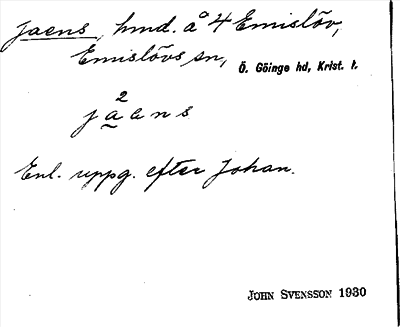 Jaens, hmd. å 4 Emislöv,
Emislövs sn, Ö. Göinge hd, Krist. l.
2
jaens
Enl. uppg. efter Johan.
JOHN SVENSSON 1930